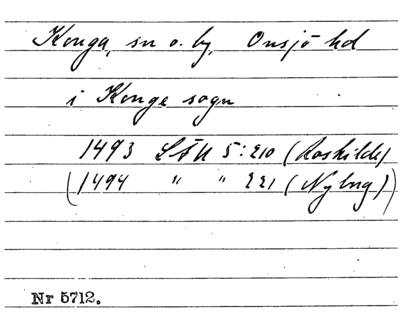 Konga, sn o. by, Onsjö hd
i Konge sogn
1493 LÄU 5:210 (Roskilde)
(1494 " " 221 (Nyborg))
Nr 5712.